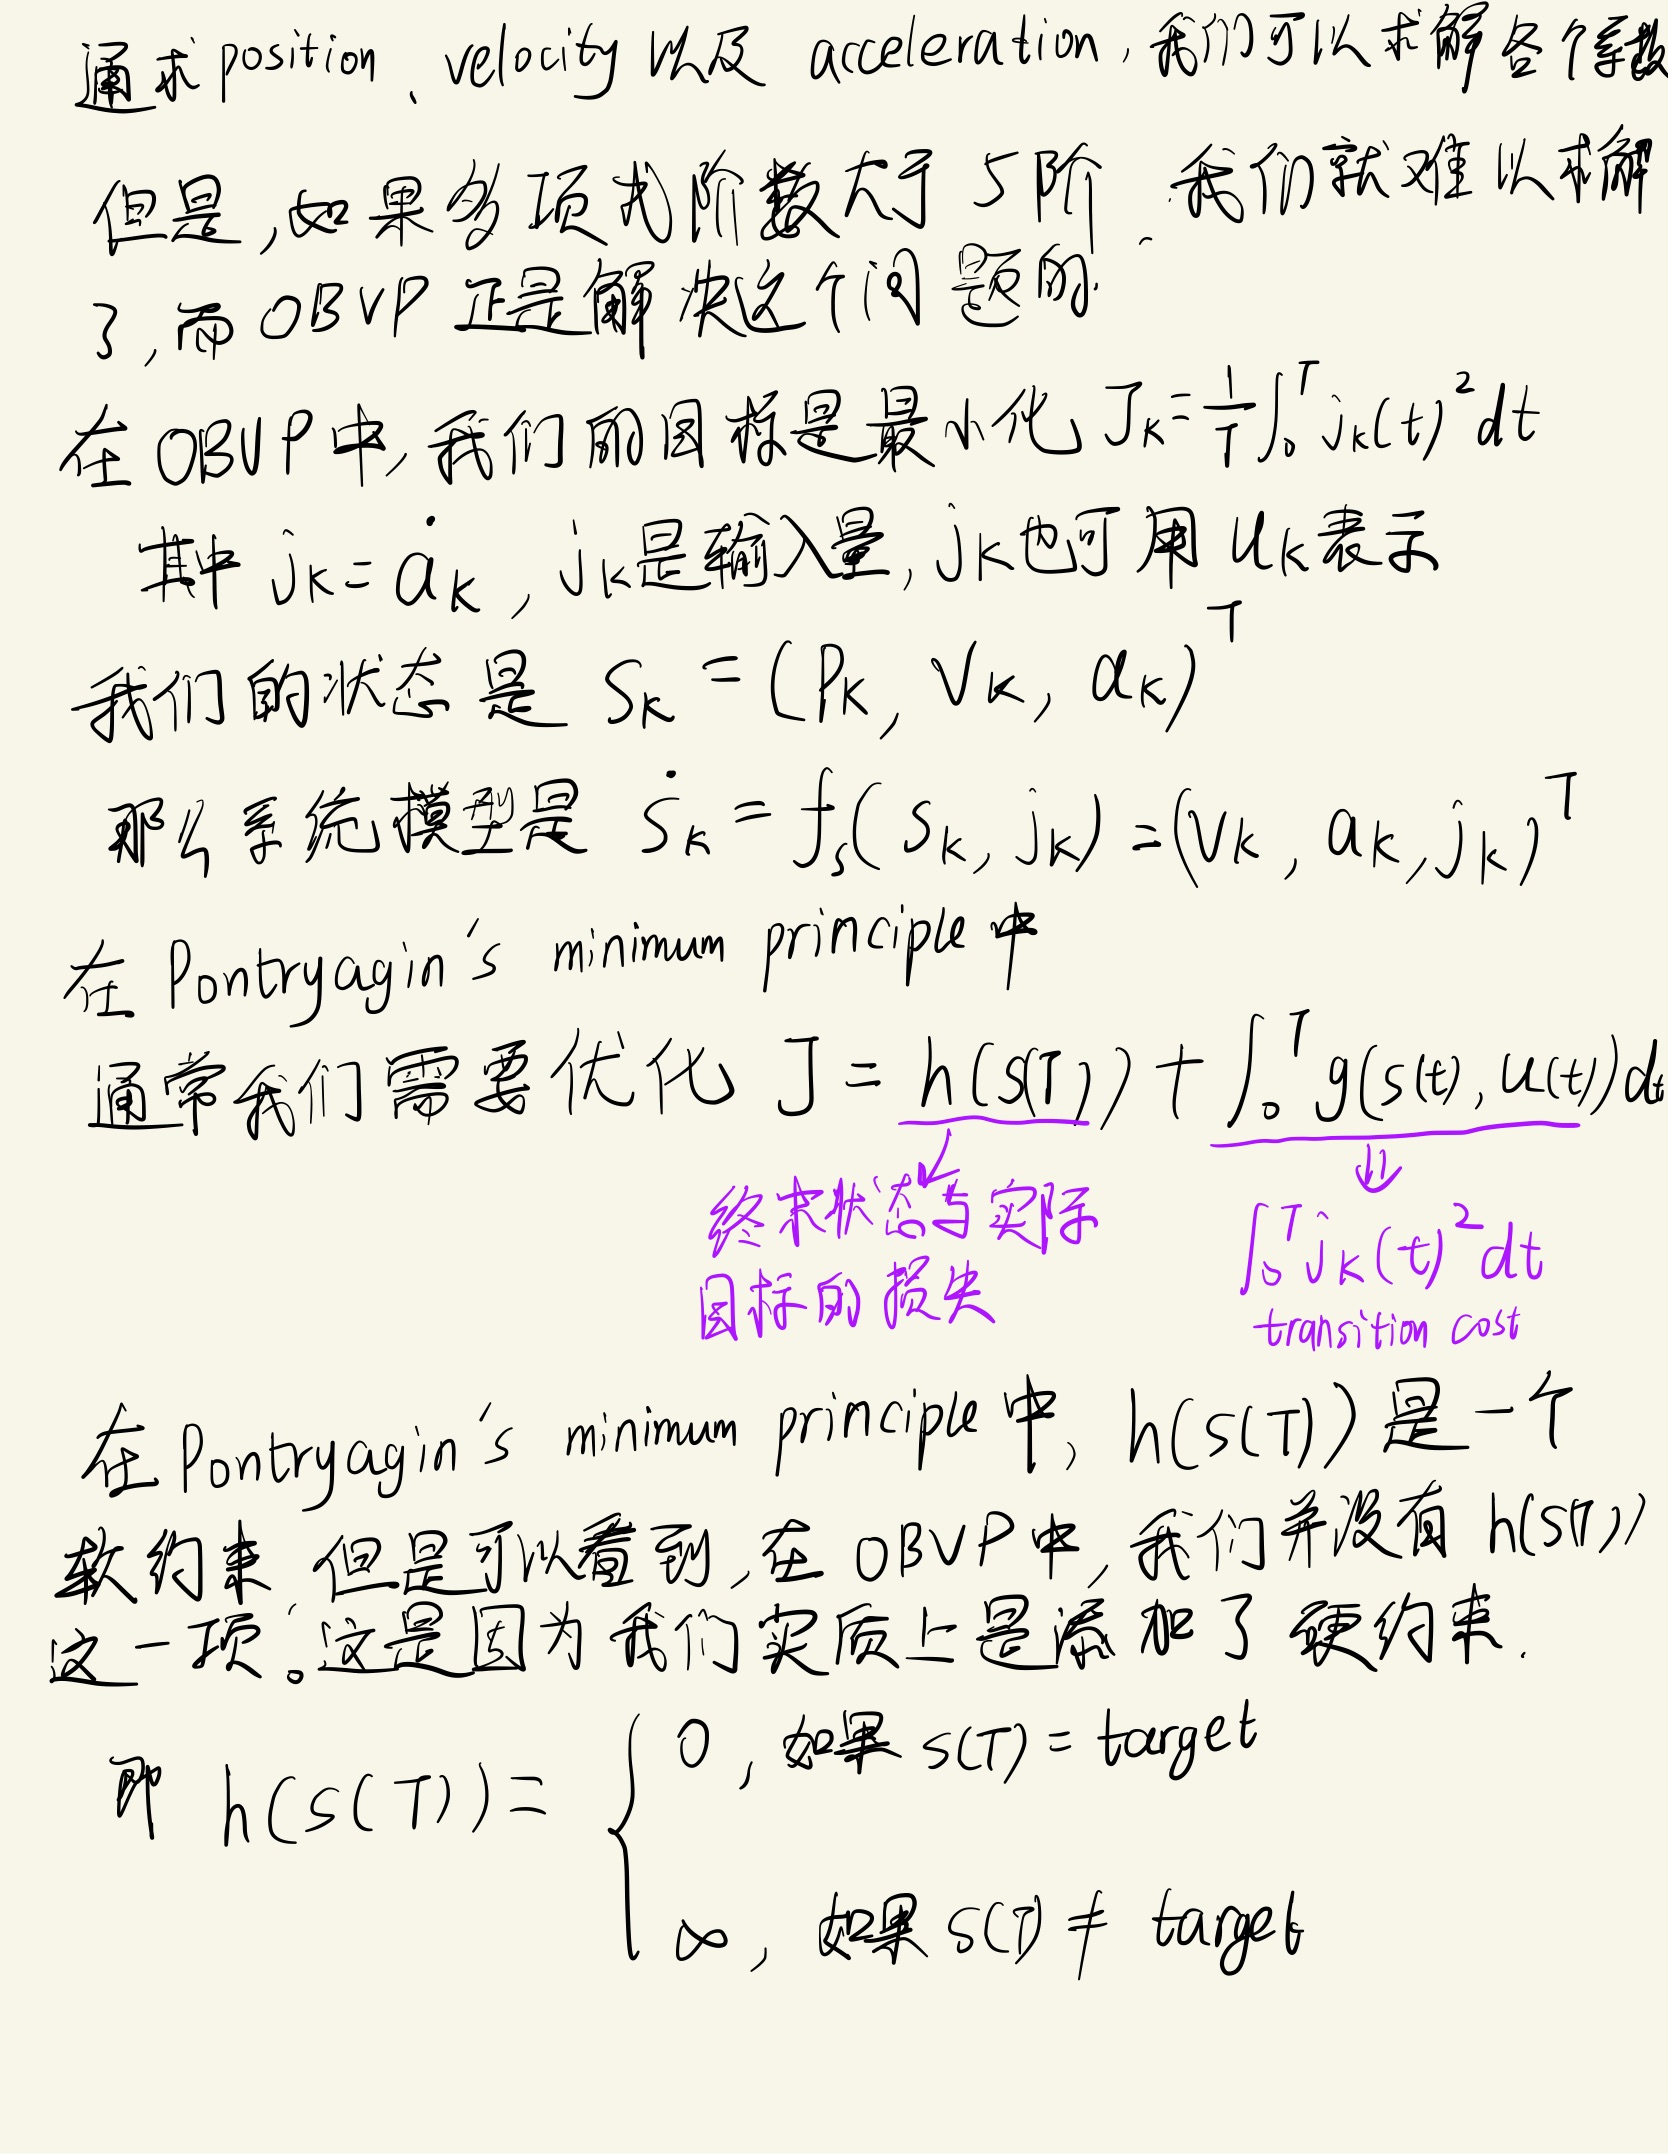 通求position、velocity以及 acceleration，我们可以求解各个系数
但是,如果多项式阶数大于5阶，我们就难以求解
了,而OBVP正是解决这个问题的.
在OBVP中,我们的目标是最小化 J_k = \frac{1}{T}∫_0^T j_k(t)^2 dt
其中 j_k = \dot{a}_k , j_k是输入量, j_k也可用 u_k表示
我们的状态是 S_k = (P_k, V_k, a_k)^T
那么系统模型是 \dot{S}_k = f_s(S_k, j_k) = (V_k, a_k, j_k)^T
在 Pontryagin's minimum principle 中
通常我们需要优化 J = h(s(T)) + ∫_0^T g(s(t), u(t))dt
终末状态与实际
目标的损失
∫_0^T j_k(t)^2 dt
transition cost
在 Pontryagin's minimum principle 中, h(s(T))是一个
软约束，但是可以看到,在OBVP中,我们并没有h(s(T))
这一项。这是因为我们实质上是添加了硬约束.
即 h(s(T)) = {
0, 如果 s(T) = target
∞, 如果 s(T) ≠ target